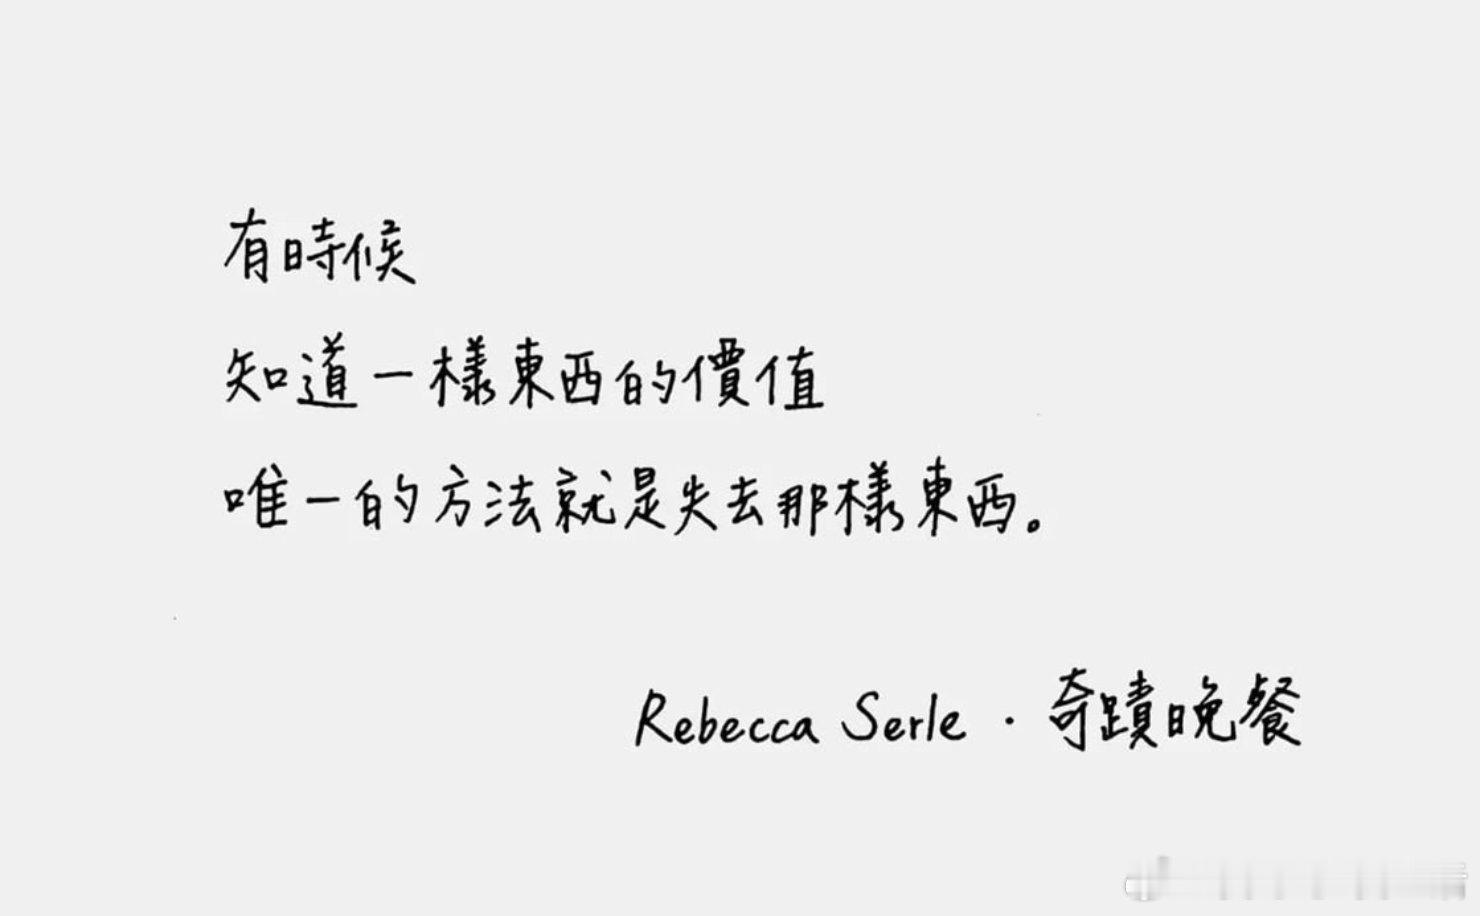 有時候
知道一樣東西的價值
唯一的方法就是失去那樣東西。
Rebecca Serle · 奇蹟晚餐